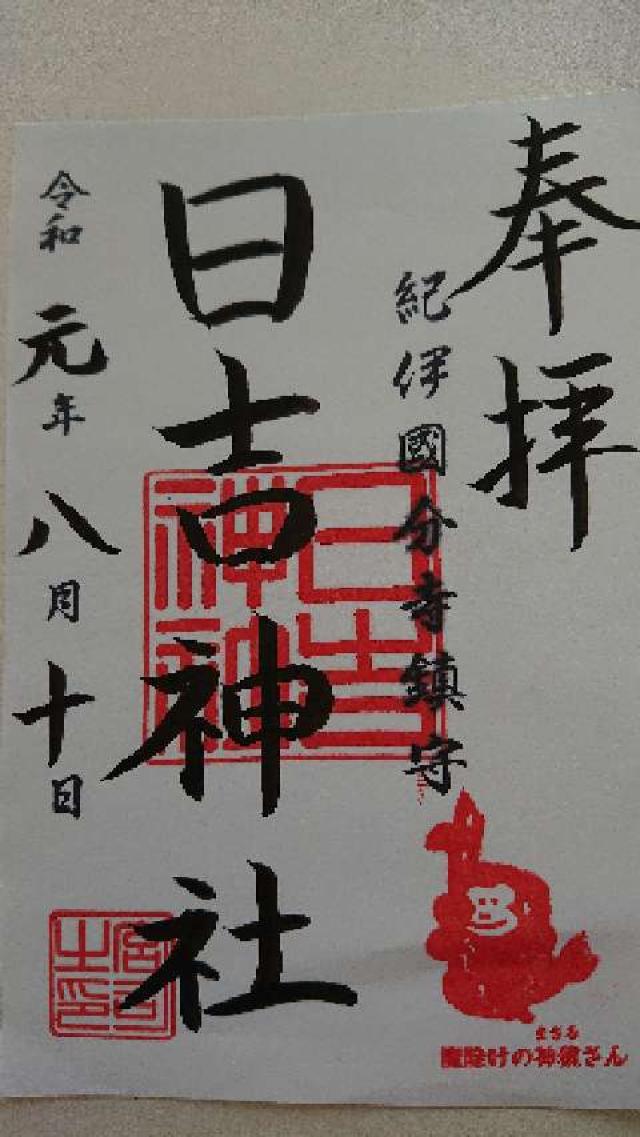 奉拝
紀伊國分寺鎮守
日吉神社
令和元年八月十日
日吉
神社
宮司
之印
まさる
魔除けの神猿さん